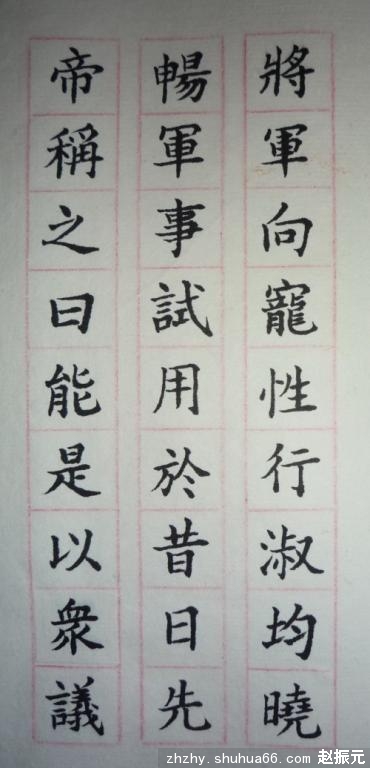 將軍向寵性行淑均曉
暢軍事試用於昔日先
帝稱之曰能是以衆議
zhzhy.shuhua66.com 赵振元